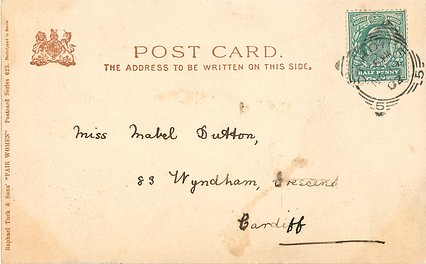 POST CARD.
THE ADDRESS TO BE WRITTEN ON THIS SIDE.
HALF PENNY
5
5
02
Miss Mabel Dutton,
83 Wyndham, Crescent
Cardiff
Raphael Tuck & Sons' "FAIR WOMEN" Postcard Series 625.